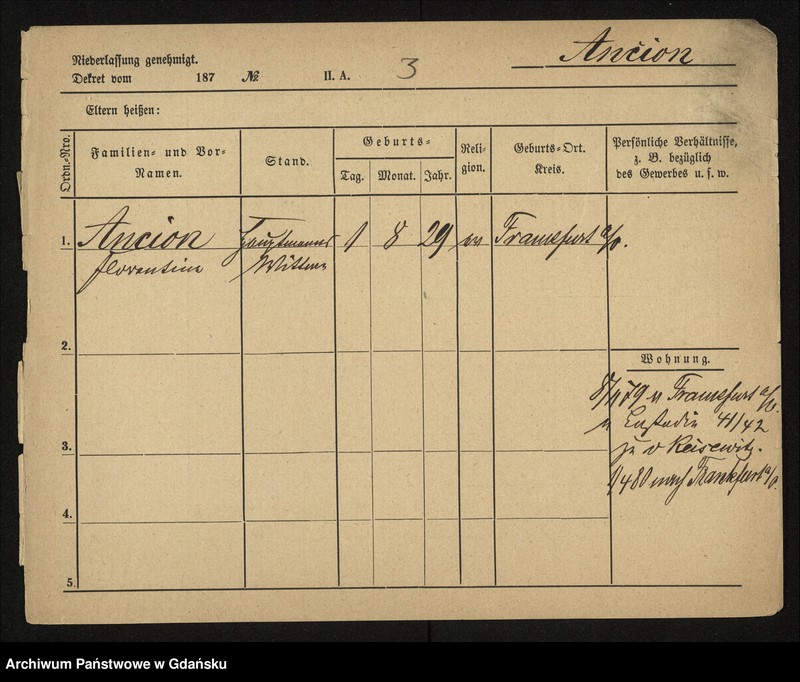 Niederlassung genehmigt.
Dekret vom 187 No. II. A. 3
Ancion
Eltern heißen:
Ordn.-Nro.
Familien- und Vor-
Namen.
Stand.
Geburts-
Tag. Monat. Jahr.
Reli-
gion.
Geburts-Ort.
Kreis.
Persönliche Verhältnisse,
z. B. bezüglich
des Gewerbes u. s. w.
1. Ancion Hauptmanns 1 8 29 Frankfurt a/o.
Florentine Wittwe
2.
Wohnung.
79 v Frankfurt a/o.
41/42
3. zu v Keisewitz.
1/4 80 nach Frankfurt a/o.
4.
5.
Archiwum Państwowe w Gdańsku